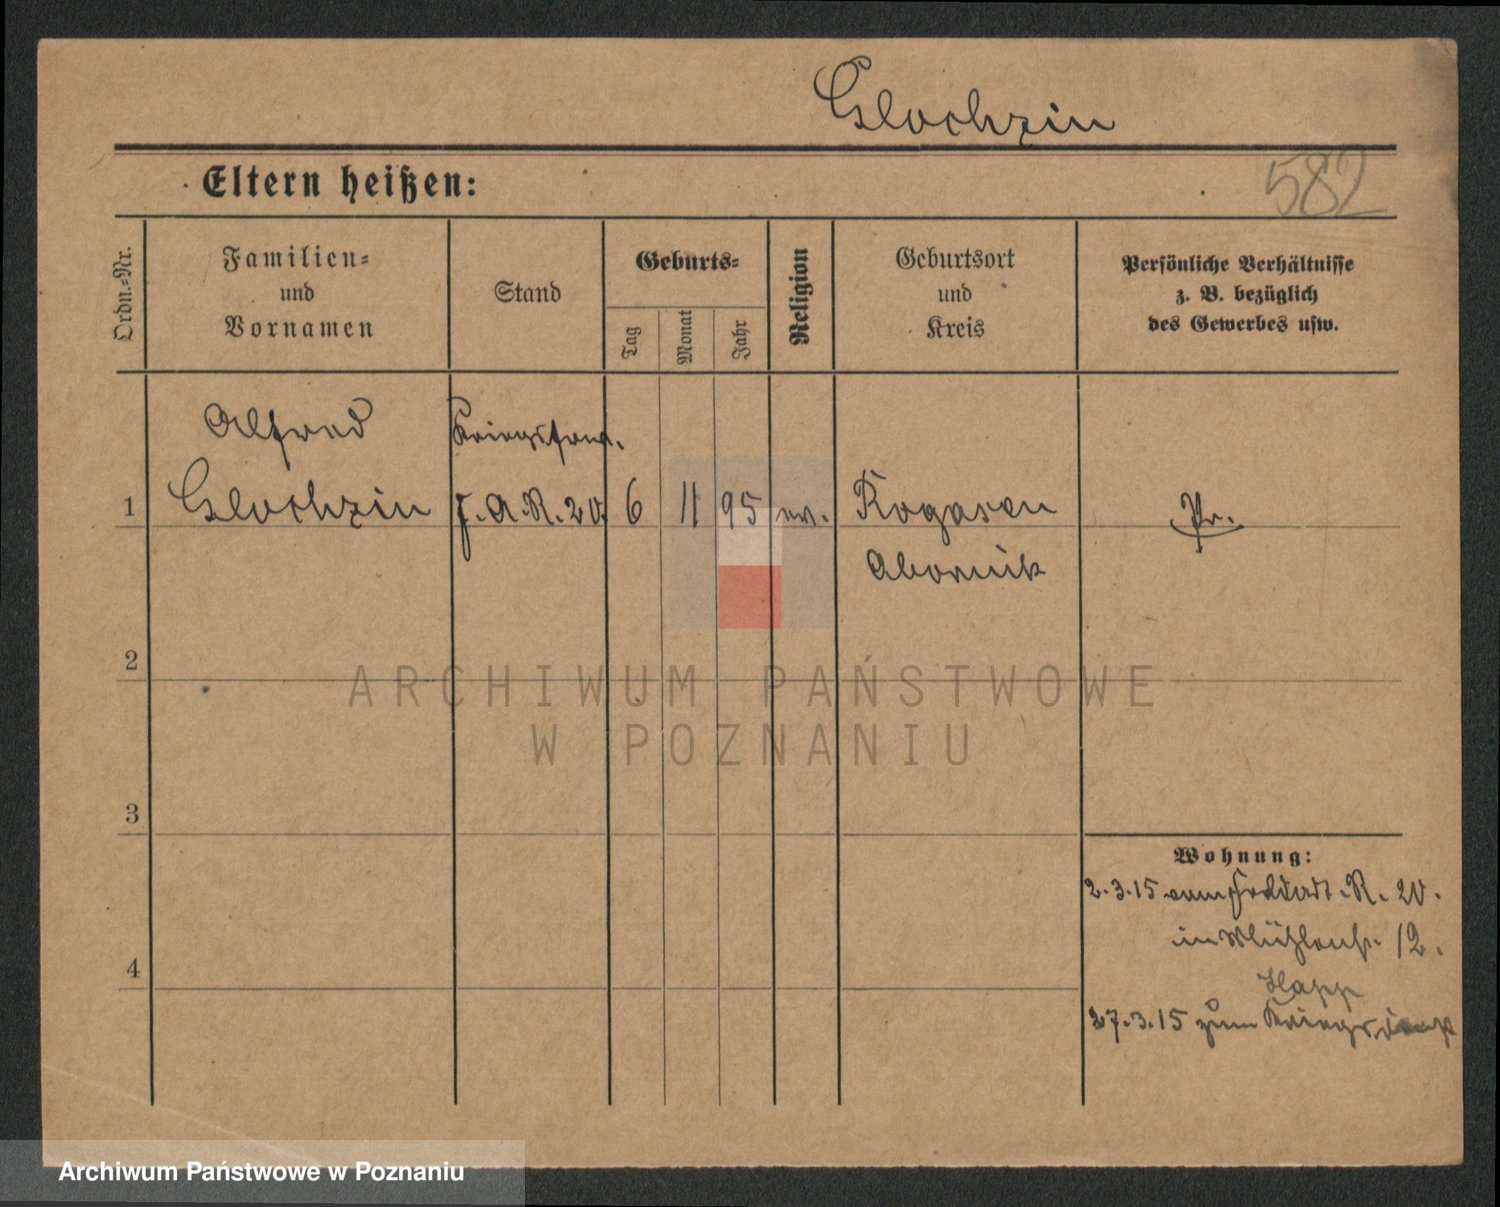 Glochzin
Eltern heißen:
582
Ordn.-Nr.
Familien-
und
Vornamen
Stand
Geburts-
Tag
Monat
Jahr
Religion
Geburtsort
und
Kreis
Persönliche Verhältnisse
z. B. bezüglich
des Gewerbes usw.
Alfred
Kriegsfreiw.
1
Glochzin
F. A. R. 20.
6
11
95
ev.
Rogasen
Pr.
Obornik
2
ARCHIWUM PAŃSTWOWE
W POZNANIU
3
Wohnung:
2.3.15 vom Feldart. R. 20.
in Mühlenstr. 12.
4
Happ
27.3.15 zum
Archiwum Państwowe w Poznaniu